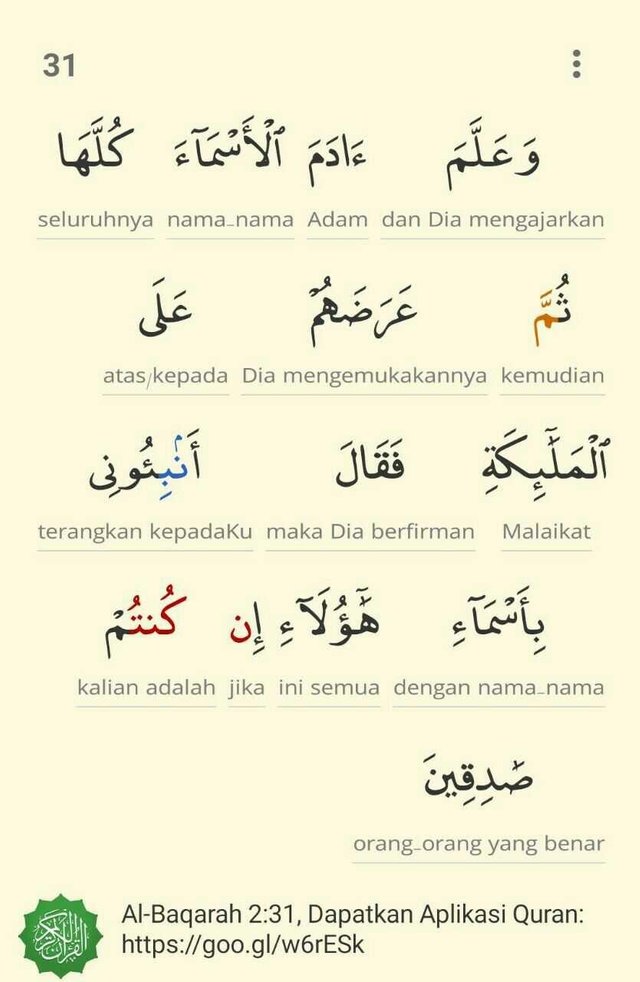 31
وَعَلَّمَ ءَادَمَ ٱلْأَسْمَآءَ كُلَّهَا
dan Dia mengajarkan Adam nama-nama seluruhnya
ثُمَّ عَرَضَهُمْ عَلَى
kemudian Dia mengemukakannya atas/kepada
ٱلْمَلَٰٓئِكَةِ فَقَالَ أَنۢبِـُٔونِى
Malaikat maka Dia berfirman terangkan kepadaKu
بِأَسْمَآءِ هَٰٓؤُلَآءِ إِن كُنتُمْ
dengan nama-nama ini semua jika kalian adalah
صَٰدِقِينَ
orang-orang yang benar
Al-Baqarah 2:31, Dapatkan Aplikasi Quran:
https://goo.gl/w6rESk
القرآن الكريم